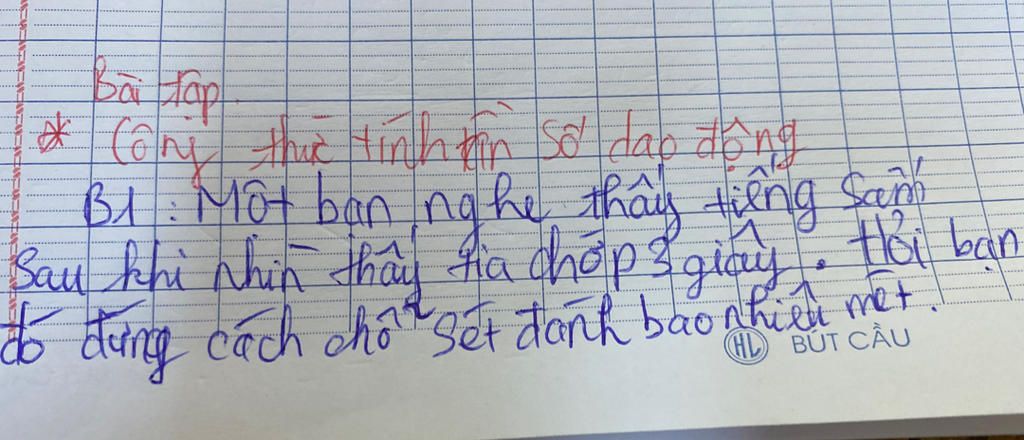 Bài tập.
* Công thức tính tần số dao động
B1 : Một bạn nghe thấy tiếng sấm
sau khi nhìn thấy tia chớp 3 giây. Hỏi bạn
đó đứng cách chỗ sét đánh bao nhiêu mét.
HL BÚT CẦU